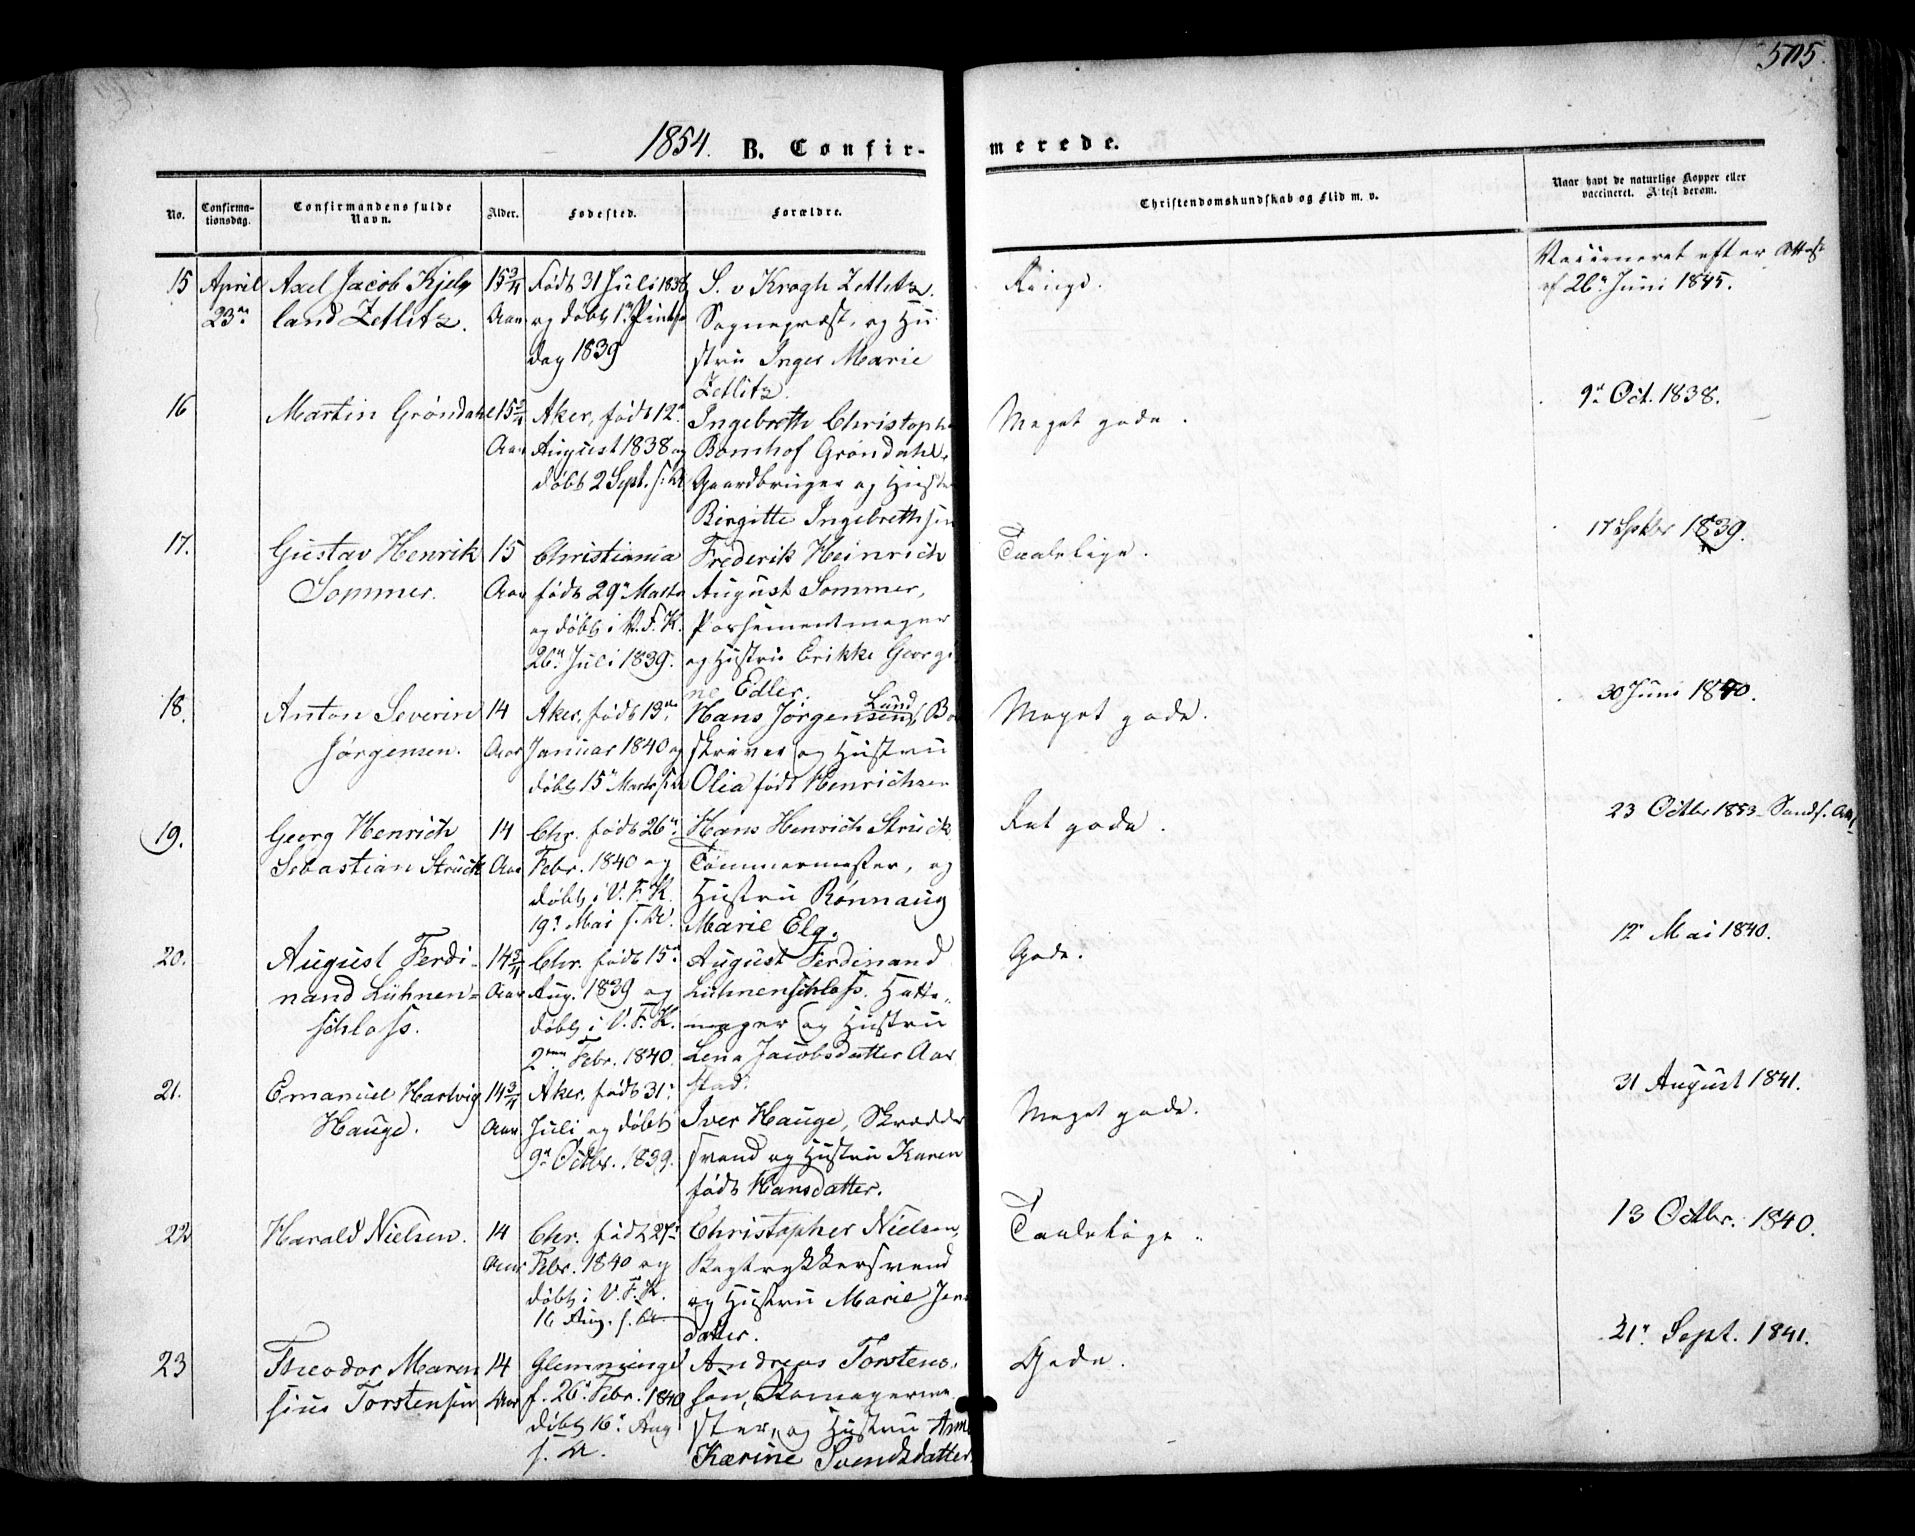 505.
1854. B. Confirmerede.
No. Confirmationsdag. Confirmandens fulde Navn. Alder. Fødested. Forældre. Christendomskundskab og Flid m. v. Naar havt de naturlige Kopper eller vaccineret. Attest derom.
15 April 23de
Axel Jacob Kjel
land Zetlitz.
15 3/4
Aar
Født 31 Juli 1838
og døbt 1ste Pintse
dag 1839
S. v Krogh Zetlitz.
Sognepræst, og Hu
stru Inger Marie
Zetlitz.
Vaccineret efter Attest
af 26de Juni 1845.
16
Martin Grøndahl
15 3/4
Aar
Aker, født 12te
August 1838 og
døbt 2 Sept. s: A
Ingebreth Christopher
Bomhof Grøndahl,
Gaardbruger og Hustru
Birgitte Ingebrethsen
Meget gode.
9de Oct. 1838.
17.
Gustav Henrik
Sommer.
15
Aar
Christiania
født 29de Marts
og døbt i V. F. K.
26de Juli 1839.
Frederik Heinrich
August Sommer,
Possementmager
og Hustru Erikke Georgi
ne Edler.
Taalelige.
17 Septbr 1839.
18.
Anton Severin
Jørgensen.
14
Aar
Aker, født 13de
Januar 1840 og
døbt 15de Marts s: A
Hans Jørgensen Lund,
skriver og Hustru
Olia født Henrichsen
Meget gode.
30 Juni 1840.
19.
Georg Henrich
Sebastian Strück
14
Aar
Chr. født 26de
Febr. 1840 og
døbt i V. F. K.
19de Mai s. A.
Hans Henrich Strück
Tømmermester, og
Hustru Rønnaug
Marie Elg.
Ret gode.
23 Octbr 1853
20.
August Ferdi-
nand Lühnen-
schloss.
14 3/4
Aar
Chr. født 15de
Aug. 1839 og
døbt i V. F. K.
2den Febr. 1840.
August Ferdinand
Lühnenschloss. Hatte-
mager og Hustru
Lena Jacobsdatter Aar
stad.
Gode.
12te Mai 1840.
21.
Emanuel Hartvig
Hauge.
14 3/4
Aar
Aker. født 31te
Juli og døbt
9de Octbr. 1839.
Iver Hauge, Skrædder
svend og Hustru Karen
født Hansdatter.
Meget gode.
31 August 1841.
22
Harald Nielsen.
14
Aar
Chr. født 27de
Febr. 1840 og
døbt i V. F. K.
16 Aug. s. A
Christopher Nielsen,
Bogtrykkersvend
og Hustru Marie Jens
datter.
Taalelige.
13 Octbr. 1840.
23
Theodor Maren
sius Torstensen
14
Aar
Glemminge
f. 26de Febr. 1840
døbt 16de Aug
s. A.
Andreas Torsten-
sen, Skomagerme
ster, og Hustru Anne
Karine Svendsdatter
Gode.
21de Sept. 1841.